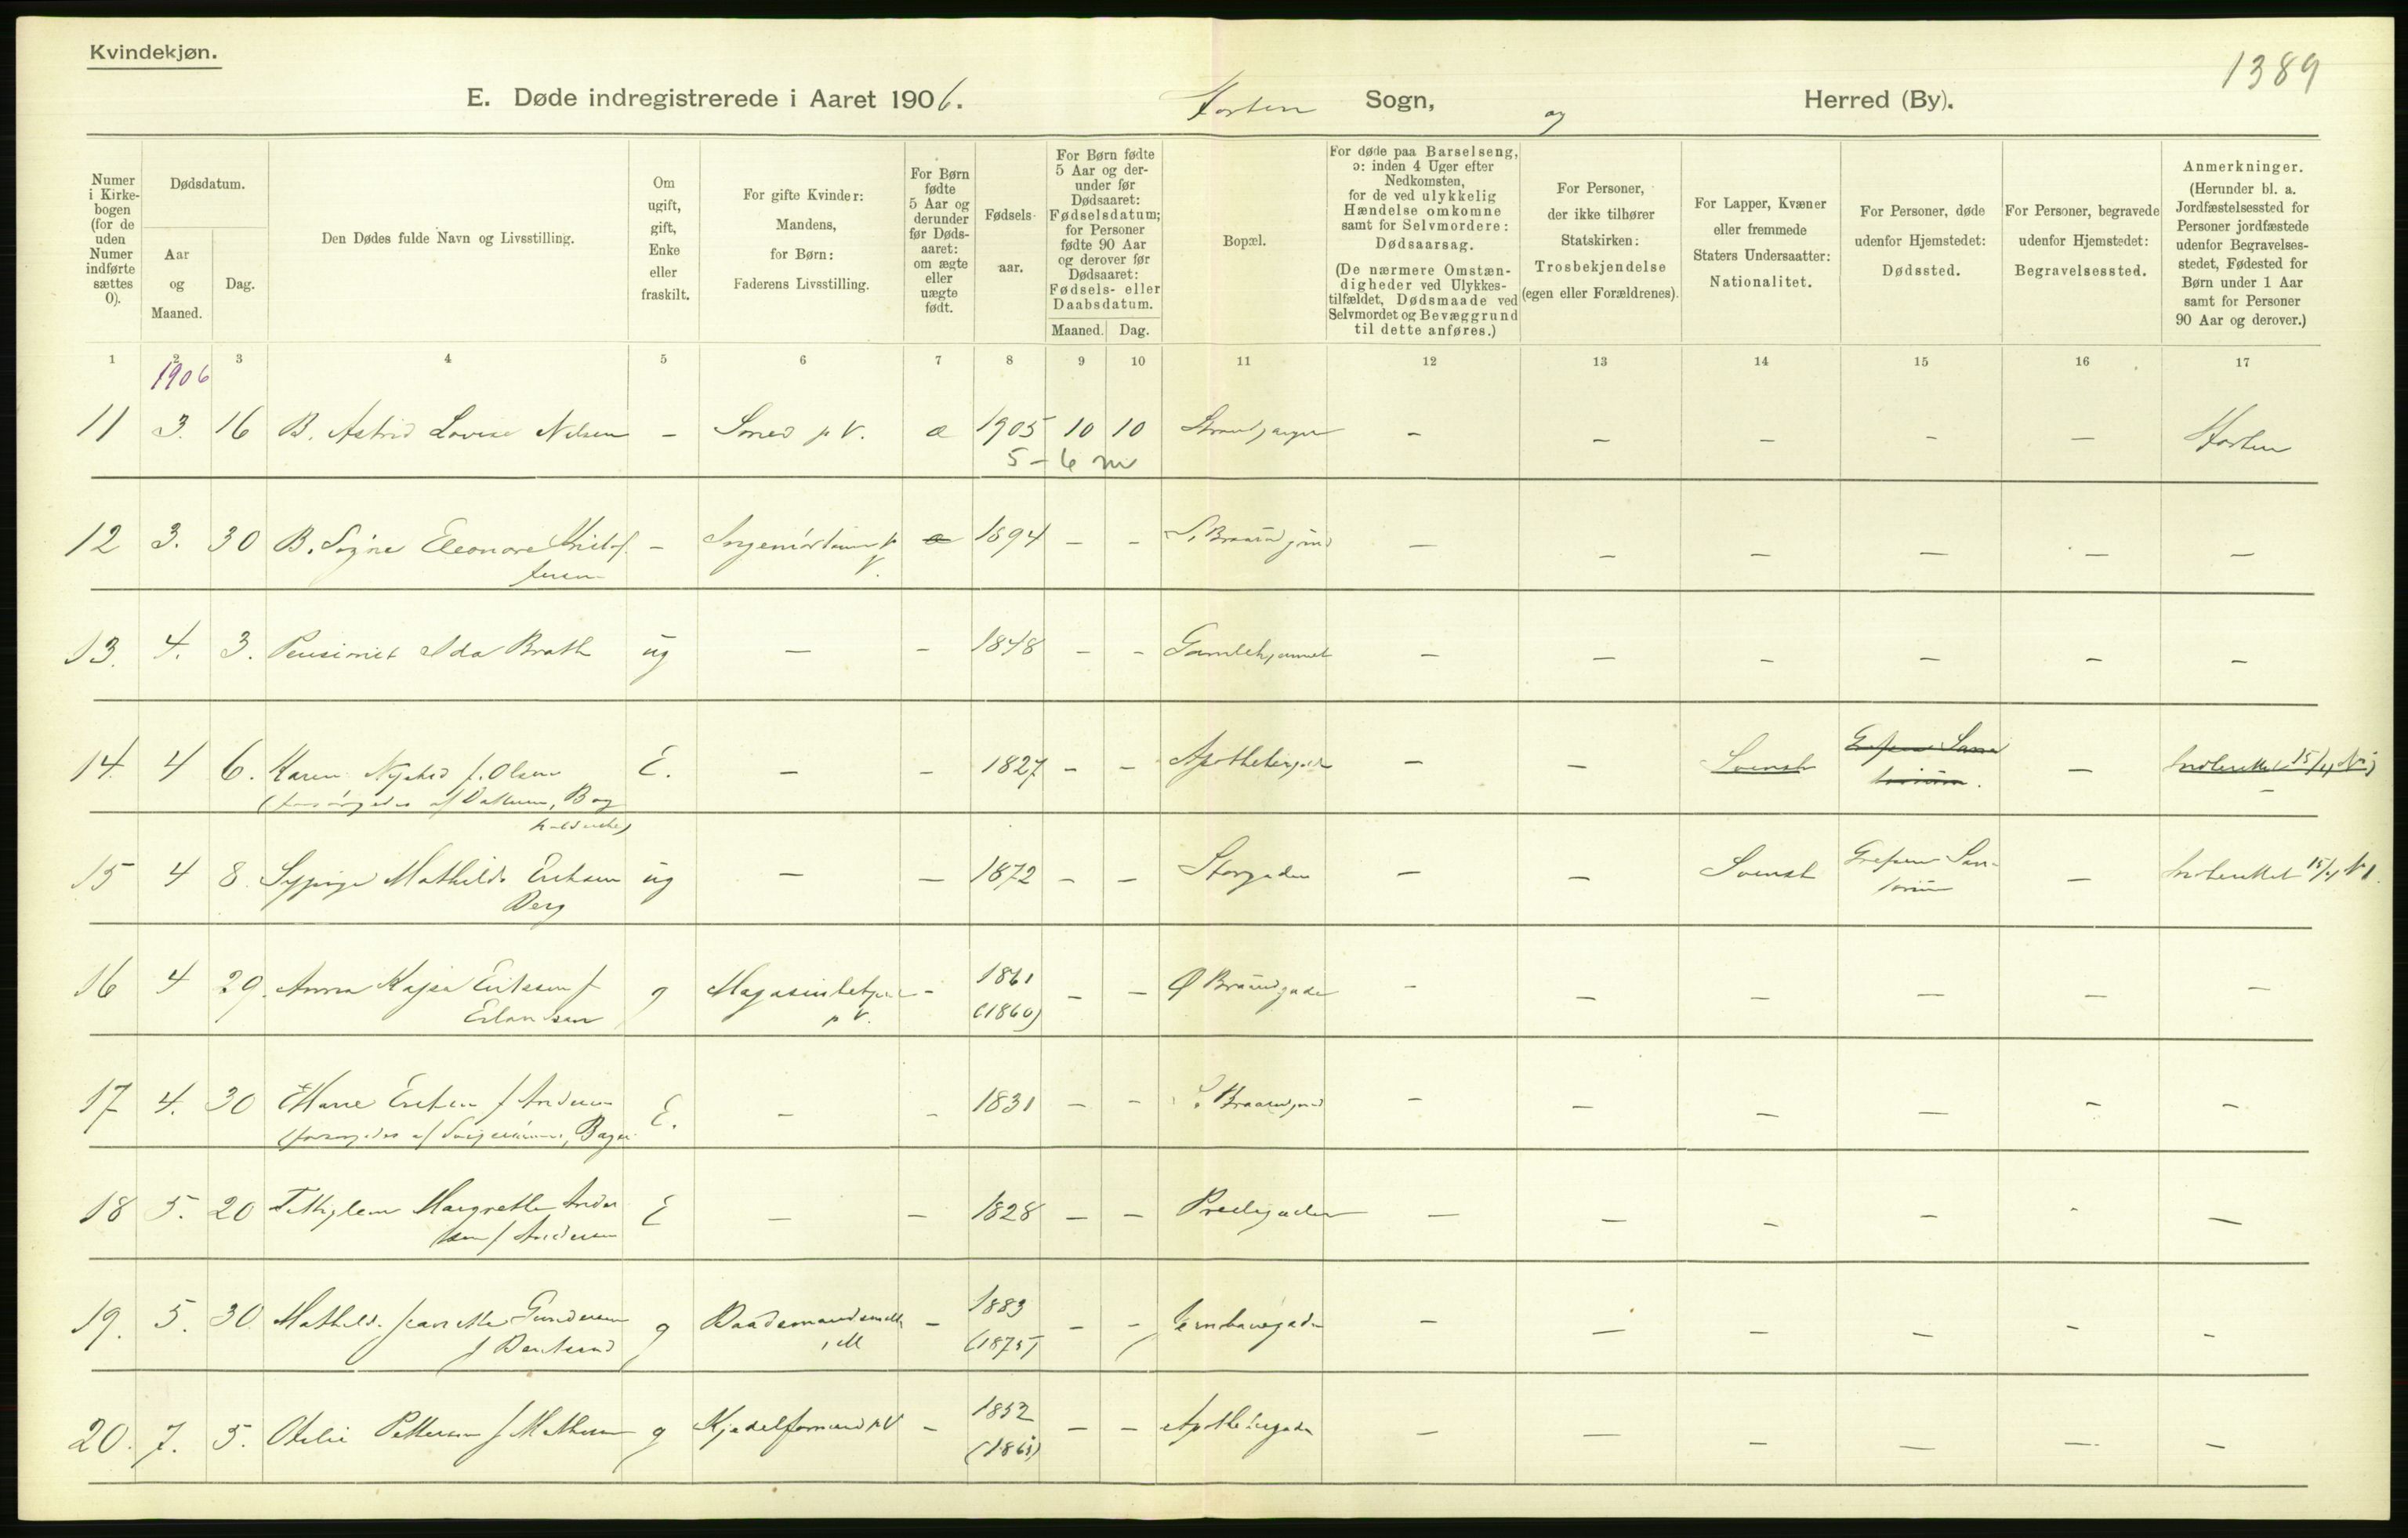 Kvindekjøn.
1389
E. Døde indregistrerede i Aaret 1906. Horten Sogn, og Herred (By).
Numer i Kirkebogen (for de uden Numer indførte sættes 0).
Dødsdatum.
Aar og Maaned.
Dag.
Den Dødes fulde Navn og Livsstilling.
Om ugift, gift, Enke eller fraskilt.
For gifte Kvinder: Mandens, for Børn: Faderens Livsstilling.
For Børn fødte 5 Aar og derunder før Dødsaaret: om ægte eller uægte født.
Fødselsaar.
For Børn fødte 5 Aar og derunder før Dødsaaret: Fødselsdatum; for Personer fødte 90 Aar og derover før Dødsaaret: Fødsels- eller Daabsdatum.
Maaned. Dag.
Bopæl.
For døde paa Barselseng, ɔ: inden 4 Uger efter Nedkomsten, for de ved ulykkelig Hændelse omkomne samt for Selvmordere: Dødsaarsag.
(De nærmere Omstændigheder ved Ulykkestilfældet, Dødsmaade ved Selvmordet og Bevæggrund til dette anføres.)
For Personer, der ikke tilhører Statskirken: Trosbekjendelse (egen eller Forældrenes).
For Lapper, Kvæner eller fremmede Staters Undersaatter: Nationalitet.
For Personer, døde udenfor Hjemstedet: Dødssted.
For Personer, begravede udenfor Hjemstedet: Begravelsessted.
Anmerkninger.
(Herunder bl. a. Jordfæstelsessted for Personer jordfæstede udenfor Begravelsesstedet, Fødested for Børn under 1 Aar samt for Personer 90 Aar og derover.)
1 2 3 4 5 6 7 8 9 10 11 12 13 14 15 16 17
1906
11 3. 16 B. Astrid Lovise Nilsen - Smed p V. a 1905 10 10 - - - - - Horten
5 - 6 m
12 3. 30 B. Signe Eleonore Kristof- - p a 1894 - - - - - - - -
fersen V.
13. 4. 3. Pensionist Ida Brath ug - - 1848 - - Gamlehjemmet - - - - - -
14. 4 6. Karen Nysted f. Olsen E. - - 1827 - - Apothekergaden - - Svensk Grefsen Sana- - Indberettet 15/4 N 1
(forsørgedes af Datteren, Bog- torium. -
holderske)
15 4 8. Sypige Mathilde Eriksen ug - - 1872 - - Storgaden - - Svensk Grefsen San- - Indberettet 15/4 N 1.
Berg torium
16 4 29. Anna Kajsa Eriksen f g - 1861 - - Ø Braarudgaden - - - - - -
Erlandsen p V. (1860)
17 4. 30 Eriksen f Andersen E. - - 1831 - - - - - - - -
(forsørgedes af Svigersønnen, Bager
18 5. 20 Margrethe Ander- E - - 1828 - - - - - - - -
sen f Andersen
19. 5. 30. Mathilde Jeanette Gundersen g Baadsmandsmath - 1883 - - Jernbanegaden - - - - - -
f Berntsen , M (1875)
20. 7. 5. Otilie Pettersen f Mathisen g Kjedelformand p V - 1852 - - Apothekergaden - - - - - -